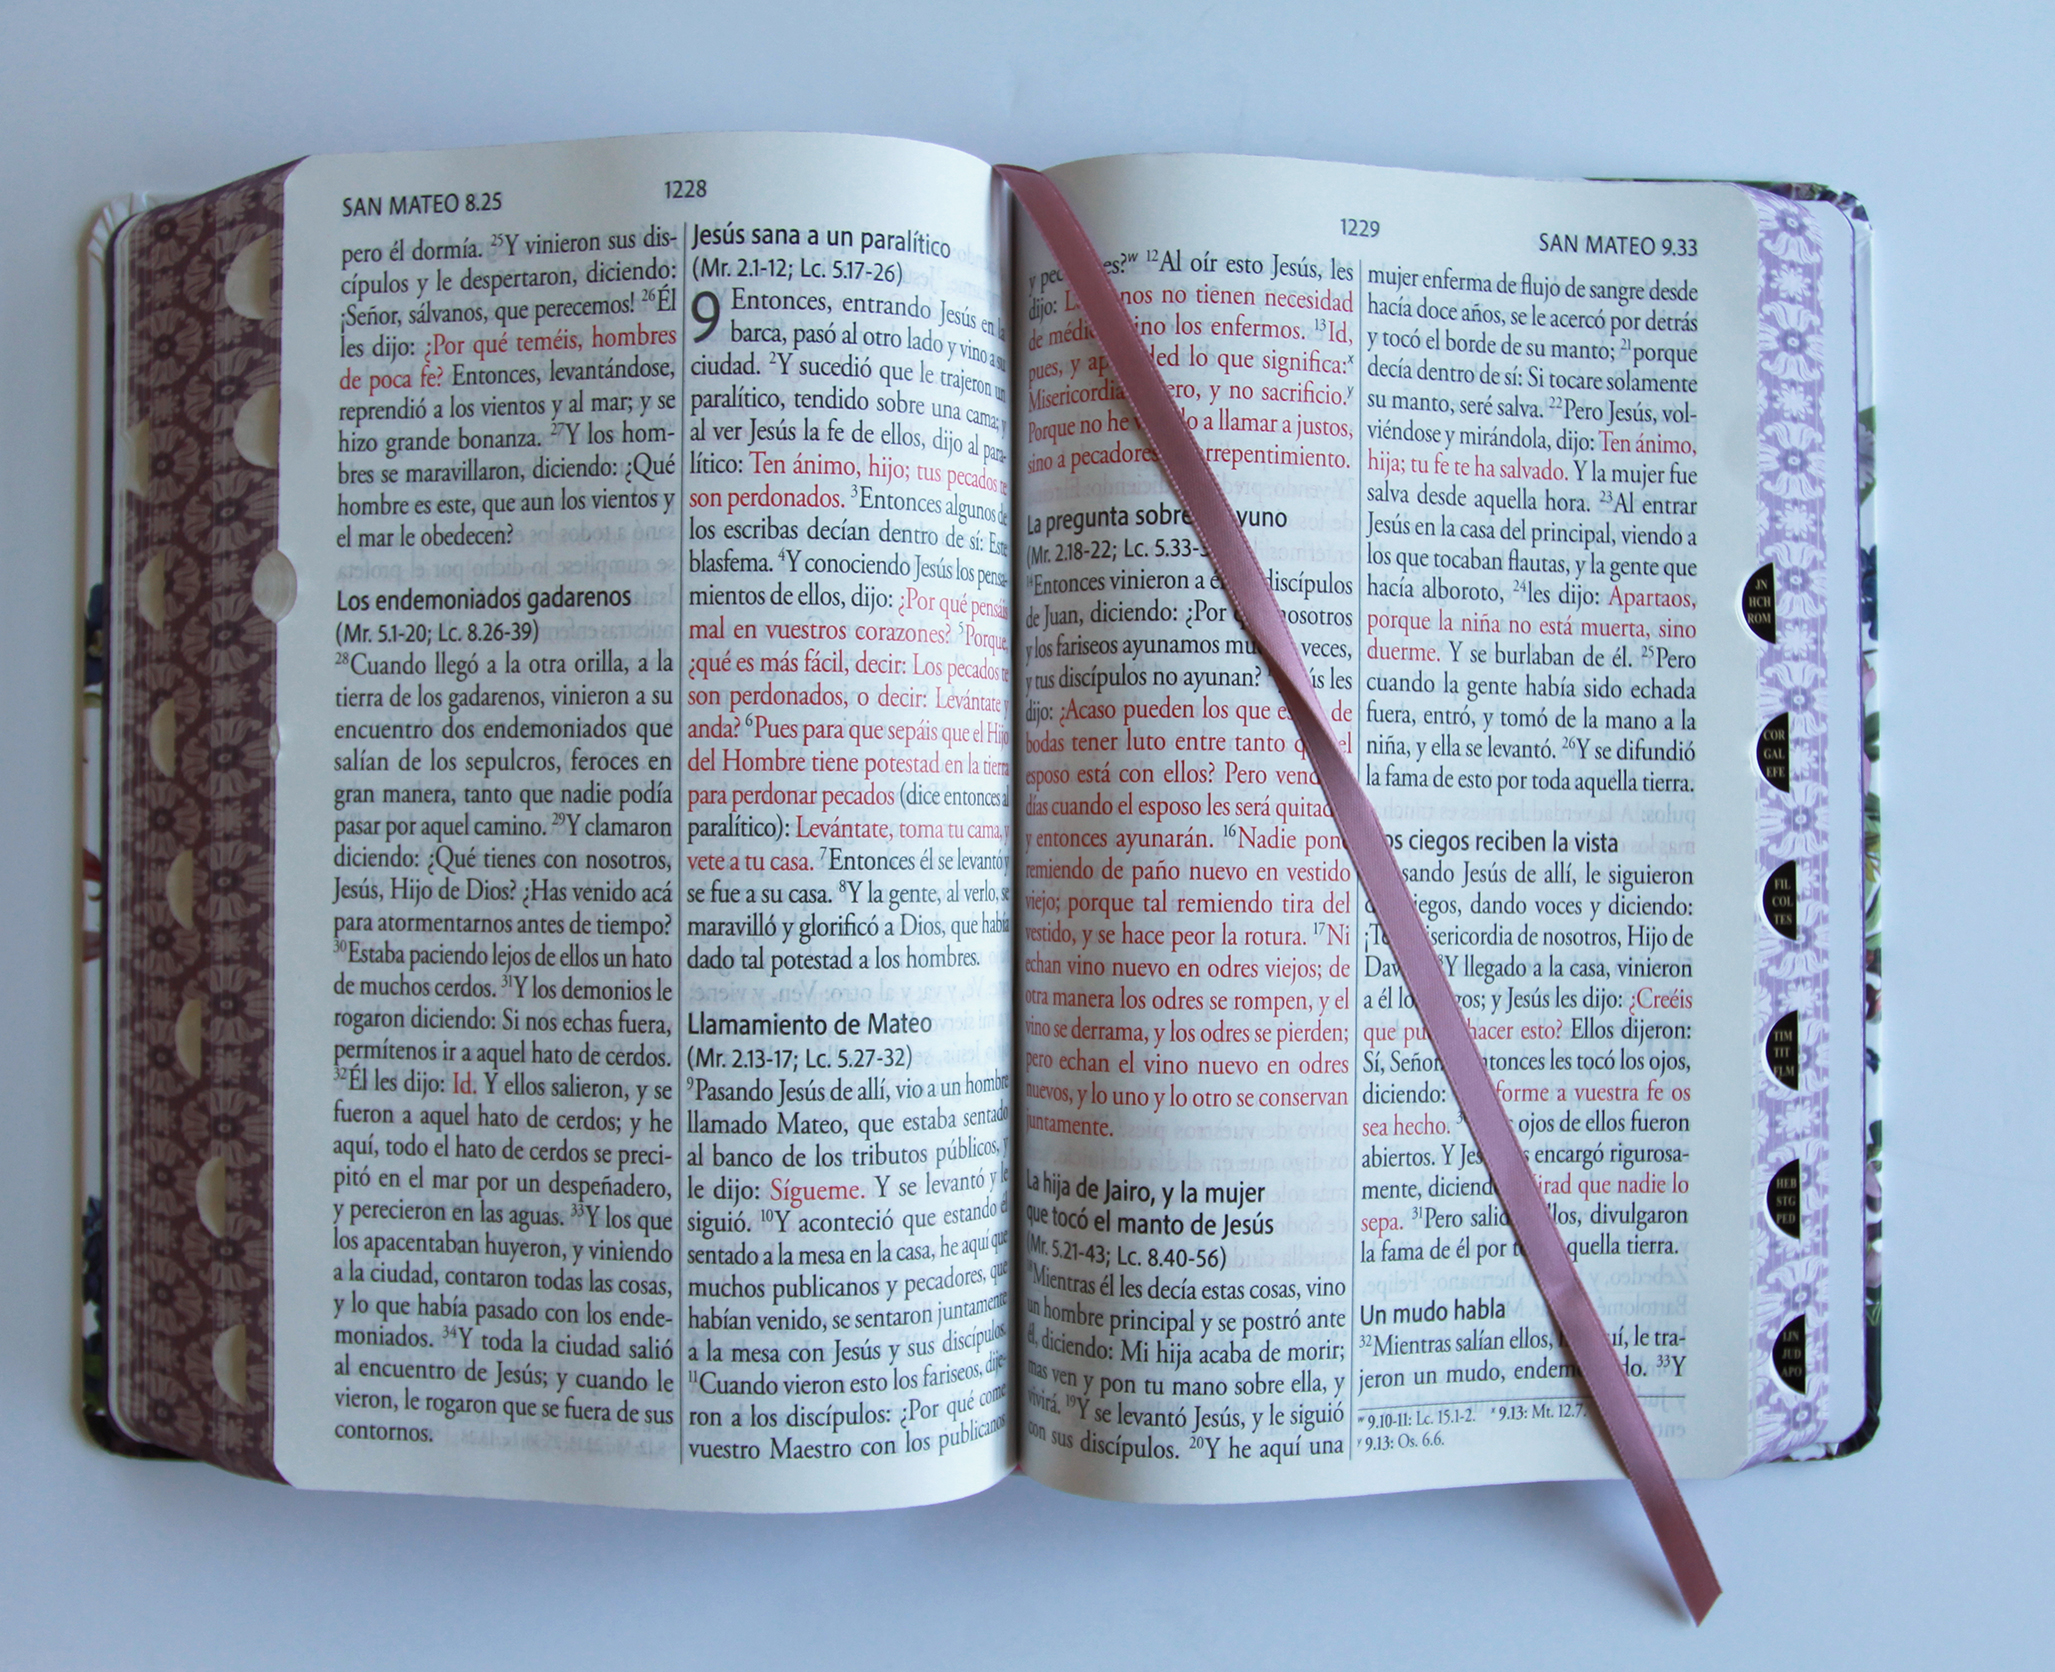 SAN MATEO 8.25
1228
pero él dormía. 25Y vinieron sus dis-
cípulos y le despertaron, diciendo:
¡Señor, sálvanos, que perecemos! 26Él
les dijo: ¿Por qué teméis, hombres
de poca fe? Entonces, levantándose,
reprendió a los vientos y al mar; y se
hizo grande bonanza. 27Y los hom-
bres se maravillaron, diciendo: ¿Qué
hombre es este, que aun los vientos y
el mar le obedecen?
Los endemoniados gadarenos
(Mr. 5.1-20; Lc. 8.26-39)
28Cuando llegó a la otra orilla, a la
tierra de los gadarenos, vinieron a su
encuentro dos endemoniados que
salían de los sepulcros, feroces en
gran manera, tanto que nadie podía
pasar por aquel camino. 29Y clamaron
diciendo: ¿Qué tienes con nosotros,
Jesús, Hijo de Dios? ¿Has venido acá
para atormentarnos antes de tiempo?
30Estaba paciendo lejos de ellos un hato
de muchos cerdos. 31Y los demonios le
rogaron diciendo: Si nos echas fuera,
permítenos ir a aquel hato de cerdos.
32Él les dijo: Id. Y ellos salieron, y se
fueron a aquel hato de cerdos; y he
aquí, todo el hato de cerdos se preci-
pitó en el mar por un despeñadero,
y perecieron en las aguas. 33Y los que
los apacentaban huyeron, y viniendo
a la ciudad, contaron todas las cosas,
y lo que había pasado con los ende-
moniados. 34Y toda la ciudad salió
al encuentro de Jesús; y cuando le
vieron, le rogaron que se fuera de sus
contornos.
Jesús sana a un paralítico
(Mr. 2.1-12; Lc. 5.17-26)
9 Entonces, entrando Jesús en la
barca, pasó al otro lado y vino a su
ciudad. 2Y sucedió que le trajeron un
paralítico, tendido sobre una cama; y
al ver Jesús la fe de ellos, dijo al para-
lítico: Ten ánimo, hijo; tus pecados te
son perdonados. 3Entonces algunos de
los escribas decían dentro de sí: Este
blasfema. 4Y conociendo Jesús los pensa-
mientos de ellos, dijo: ¿Por qué pensáis
mal en vuestros corazones? 5Porque,
¿qué es más fácil, decir: Los pecados te
son perdonados, o decir: Levántate y
anda? 6Pues para que sepáis que el Hijo
del Hombre tiene potestad en la tierra
para perdonar pecados (dice entonces al
paralítico): Levántate, toma tu cama, y
vete a tu casa. 7Entonces él se levantó y
se fue a su casa. 8Y la gente, al verlo, se
maravilló y glorificó a Dios, que había
dado tal potestad a los hombres.
Llamamiento de Mateo
(Mr. 2.13-17; Lc. 5.27-32)
9Pasando Jesús de allí, vio a un hombre
llamado Mateo, que estaba sentado
al banco de los tributos públicos, y
le dijo: Sígueme. Y se levantó y le
siguió. 10Y aconteció que estando él
sentado a la mesa en la casa, he aquí que
muchos publicanos y pecadores, que
habían venido, se sentaron juntamente
a la mesa con Jesús y sus discípulos.
11Cuando vieron esto los fariseos, dije-
ron a los discípulos: ¿Por qué come
vuestro Maestro con los publicanos
1229
SAN MATEO 9.33
y pec es?w 12Al oír esto Jesús, les
dijo: L nos no tienen necesidad
de médic ino los enfermos. 13Id,
pues, y ap ded lo que significa:x
Misericordia ero, y no sacrificio.y
Porque no he v o a llamar a justos,
sino a pecadores rrepentimiento.
La pregunta sobre yuno
(Mr. 2.18-22; Lc. 5.33-3
14Entonces vinieron a é discípulos
de Juan, diciendo: ¿Por q osotros
y los fariseos ayunamos mu veces,
y tus discípulos no ayunan? ús les
dijo: ¿Acaso pueden los que e de
bodas tener luto entre tanto q el
esposo está con ellos? Pero vend
días cuando el esposo les será quitad
y entonces ayunarán. 16Nadie pone
remiendo de paño nuevo en vestido
viejo; porque tal remiendo tira del
vestido, y se hace peor la rotura. 17Ni
echan vino nuevo en odres viejos; de
otra manera los odres se rompen, y el
vino se derrama, y los odres se pierden;
pero echan el vino nuevo en odres
nuevos, y lo uno y lo otro se conservan
juntamente.
La hija de Jairo, y la mujer
que tocó el manto de Jesús
(Mr. 5.21-43; Lc. 8.40-56)
18Mientras él les decía estas cosas, vino
un hombre principal y se postró ante
él, diciendo: Mi hija acaba de morir;
mas ven y pon tu mano sobre ella, y
vivirá. 19Y se levantó Jesús, y le siguió
con sus discípulos. 20Y he aquí una
mujer enferma de flujo de sangre desde
hacía doce años, se le acercó por detrás
y tocó el borde de su manto; 21porque
decía dentro de sí: Si tocare solamente
su manto, seré salva. 22Pero Jesús, vol-
viéndose y mirándola, dijo: Ten ánimo,
hija; tu fe te ha salvado. Y la mujer fue
salva desde aquella hora. 23Al entrar
Jesús en la casa del principal, viendo a
los que tocaban flautas, y la gente que
hacía alboroto, 24les dijo: Apartaos,
porque la niña no está muerta, sino
duerme. Y se burlaban de él. 25Pero
cuando la gente había sido echada
fuera, entró, y tomó de la mano a la
niña, y ella se levantó. 26Y se difundió
la fama de esto por toda aquella tierra.
os ciegos reciben la vista
sando Jesús de allí, le siguieron
iegos, dando voces y diciendo:
isericordia de nosotros, Hijo de
Dav Y llegado a la casa, vinieron
a él lo gos; y Jesús les dijo: ¿Creéis
que pu hacer esto? Ellos dijeron:
Sí, Señor ntonces les tocó los ojos,
diciendo: forme a vuestra fe os
sea hecho. ojos de ellos fueron
abiertos. Y Jes encargó rigurosa-
mente, diciend irad que nadie lo
sepa. 31Pero salid llos, divulgaron
la fama de él por t quella tierra.
Un mudo habla
32Mientras salían ellos, uí, le tra-
jeron un mudo, endem do. 33Y
w 9.10-11: Lc. 15.1-2. x 9.13: Mt. 12.7.
y 9.13: Os. 6.6.
JN
HCH
ROM
COR
GAL
EFE
FIL
COL
TES
TIM
TIT
FLM
HEB
STG
PED
IJN
JUD
APO